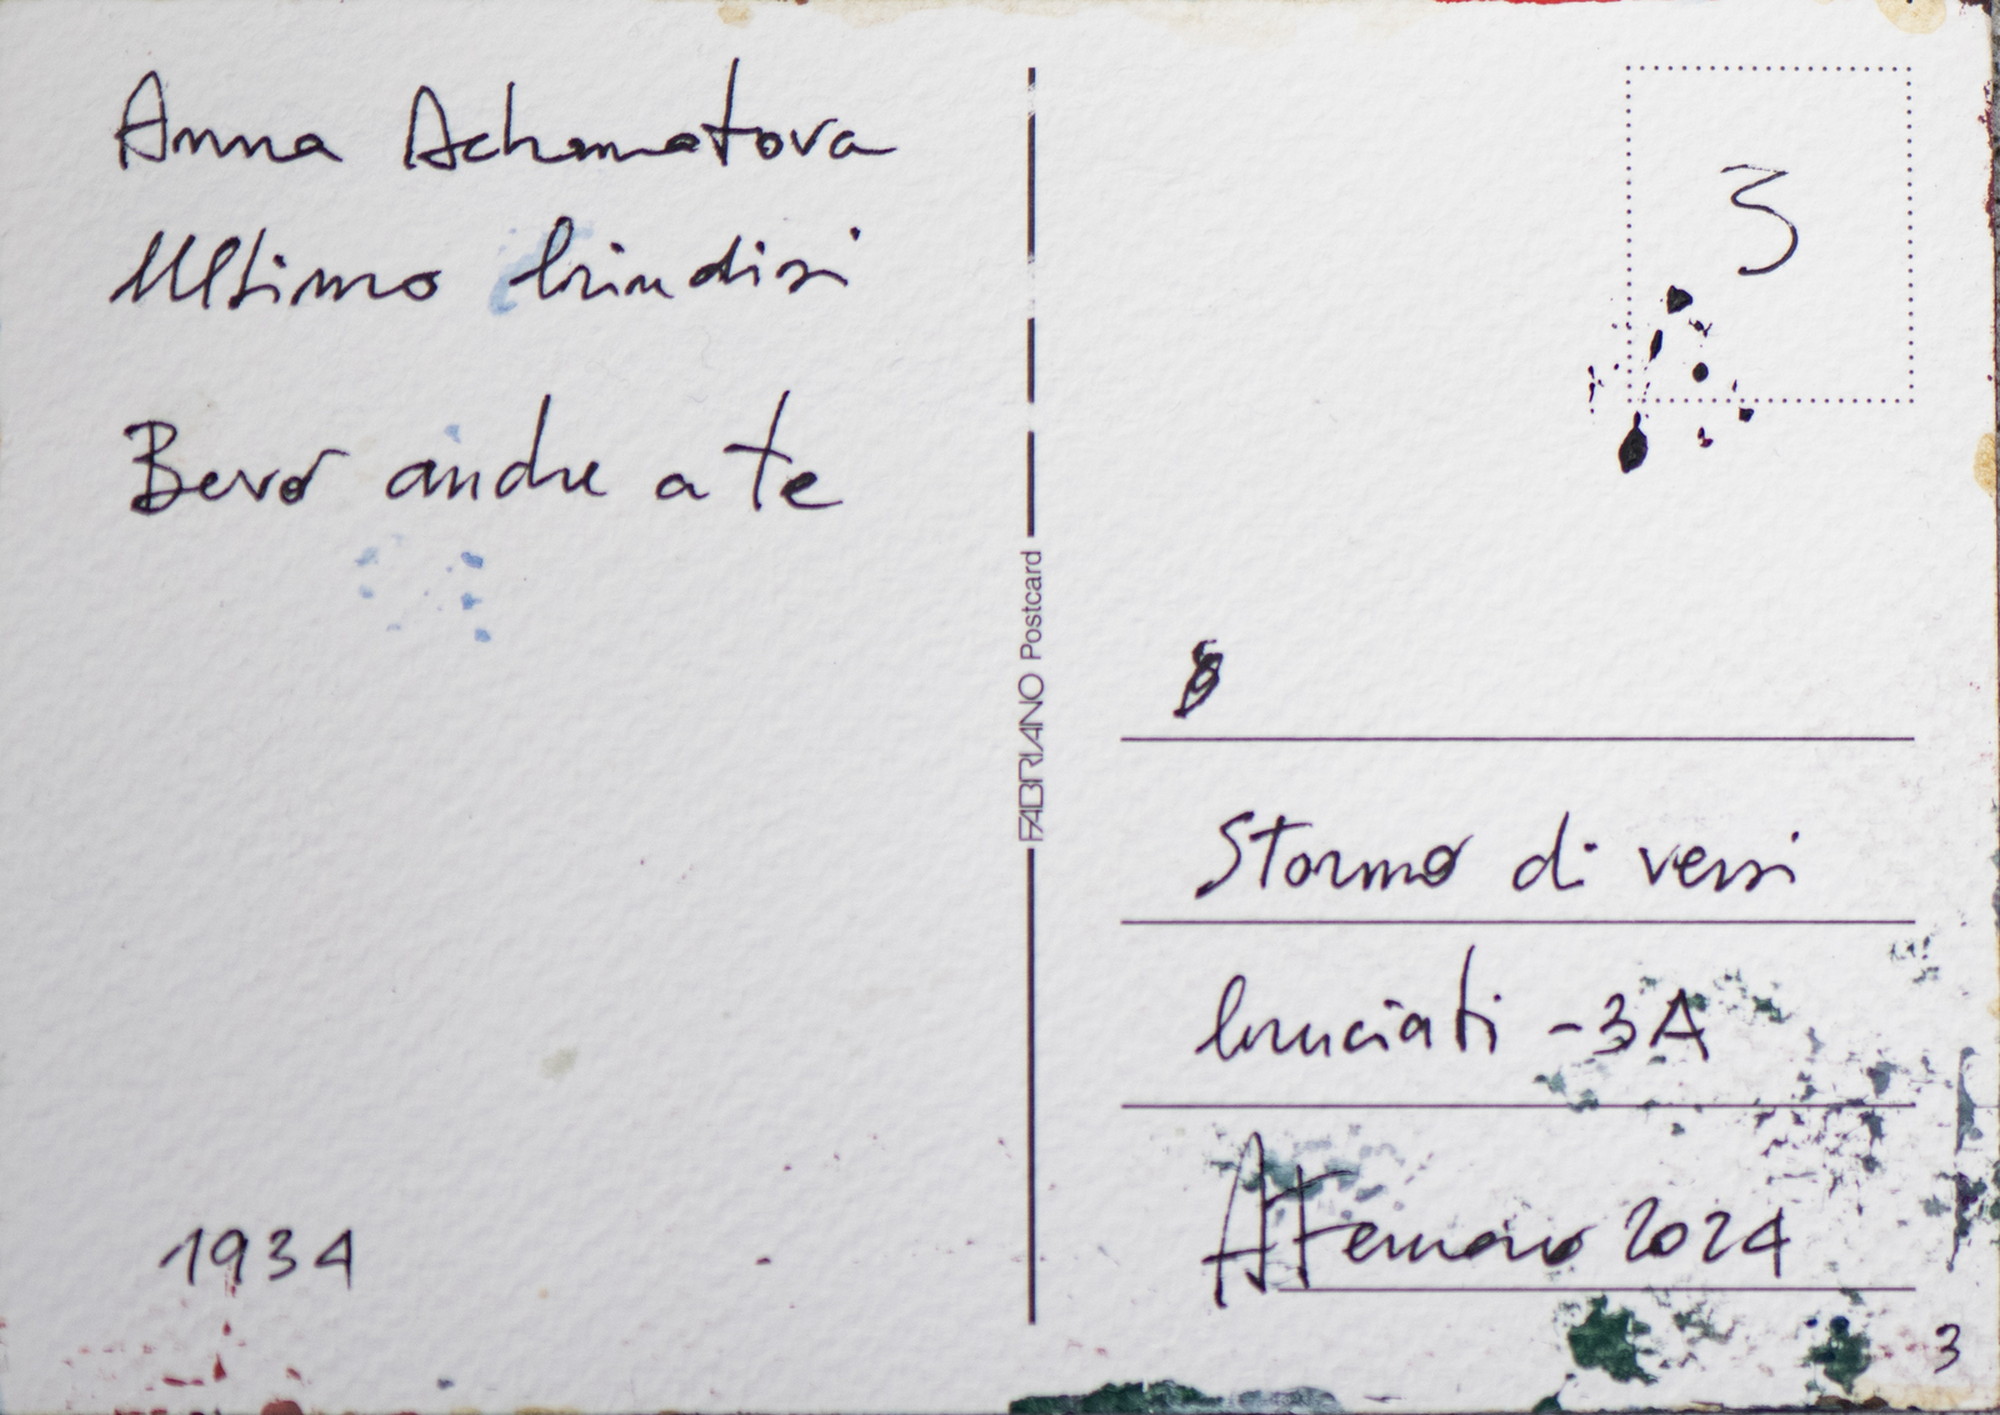 Anna Achmatova
Ultimo brindisi
Bevo anche a te
1934
FABRIANO Postcard
3
Stormo di versi
bruciati - 3A
2024
3